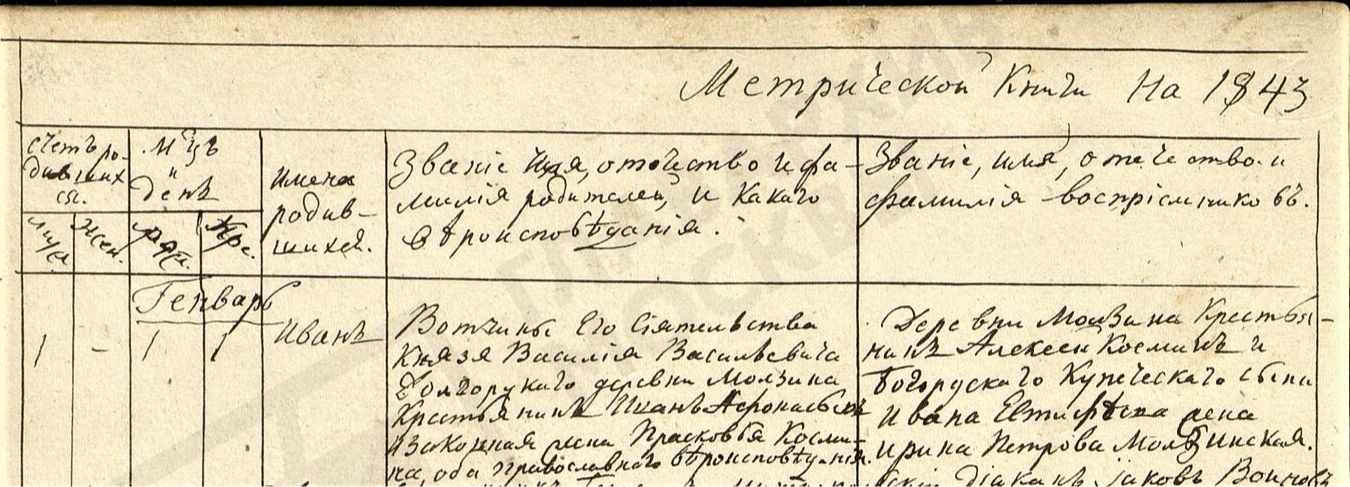 Метрической Книги На 1843
счетъ ро-
дившихся.
М-цъ
и
день
Имена
родив-
шихся.
Званіе Имя, отечство и фа-
милія родителей, и какаго
вѣроисповѣданія.
Званіе, имя, отечество и
фамилія воспріемниковъ.
муж.
жен.
рож.
Кре.
Генварь
1
-
1
1
Иванъ
Вотчины Его Сіятельства
Князя Василія Васильевича
Долгорукаго деревни Молзина
Крестьянинъ Иванъ Афонасьевъ
и законная жена Прасковья Косми-
на, оба православнаго вѣроисповѣданія.
Деревни Молзина Крестья-
нинъ Алексеи Косминъ и
Богородскаго Купеческаго сына
Ивана жена
Ирина Петрова Молзинская.
Діаконъ Іаковъ